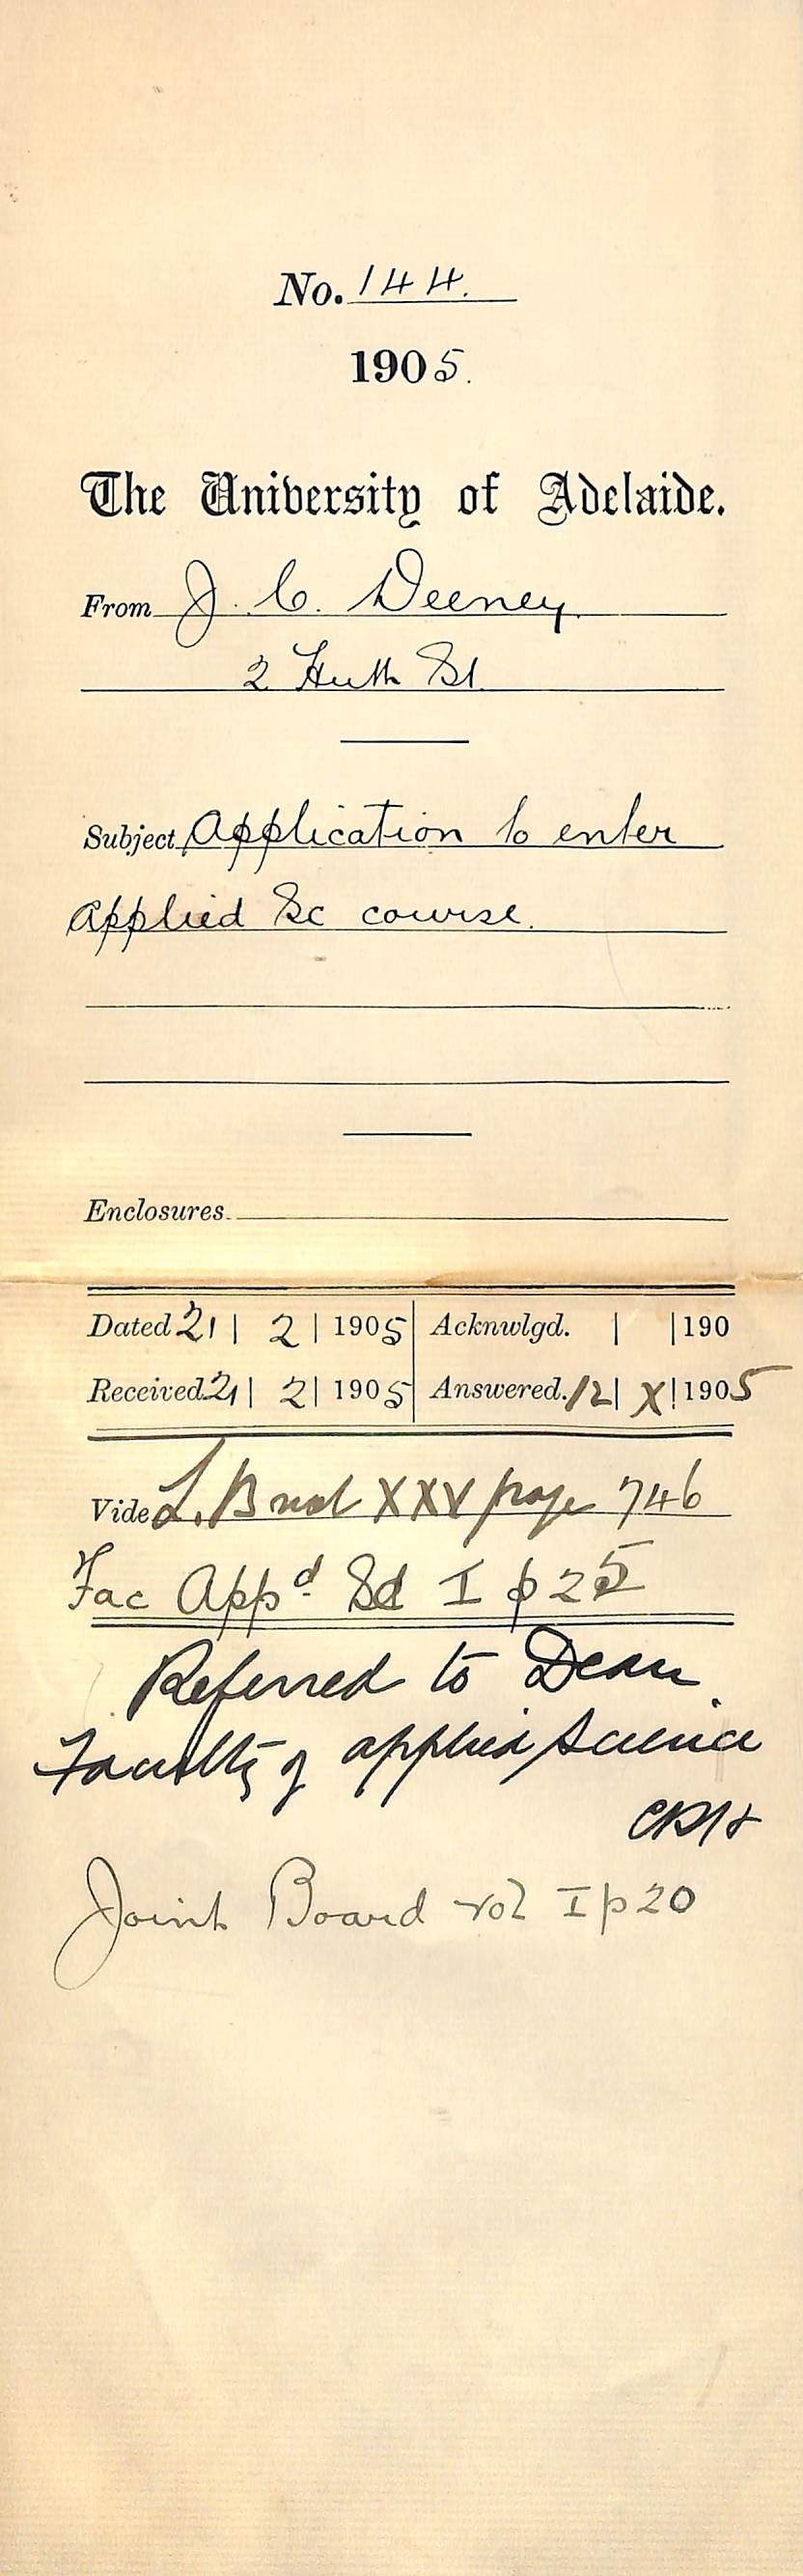 No. 144.
1905.
The University of Adelaide.
From J. C. Deeney.
2 Huth St.
Subject Application to enter
Applied Sc course.
Enclosures
Dated 21 | 2 | 1905 Acknwlgd. | | 190
Received 21 | 2 | 1905 Answered. 12 | X | 1905
Vide L. B vol XXV page 746
Fac Appd Sc I p 25
Referred to Dean
Faculty of applied Science
Joint Board vol I p 20